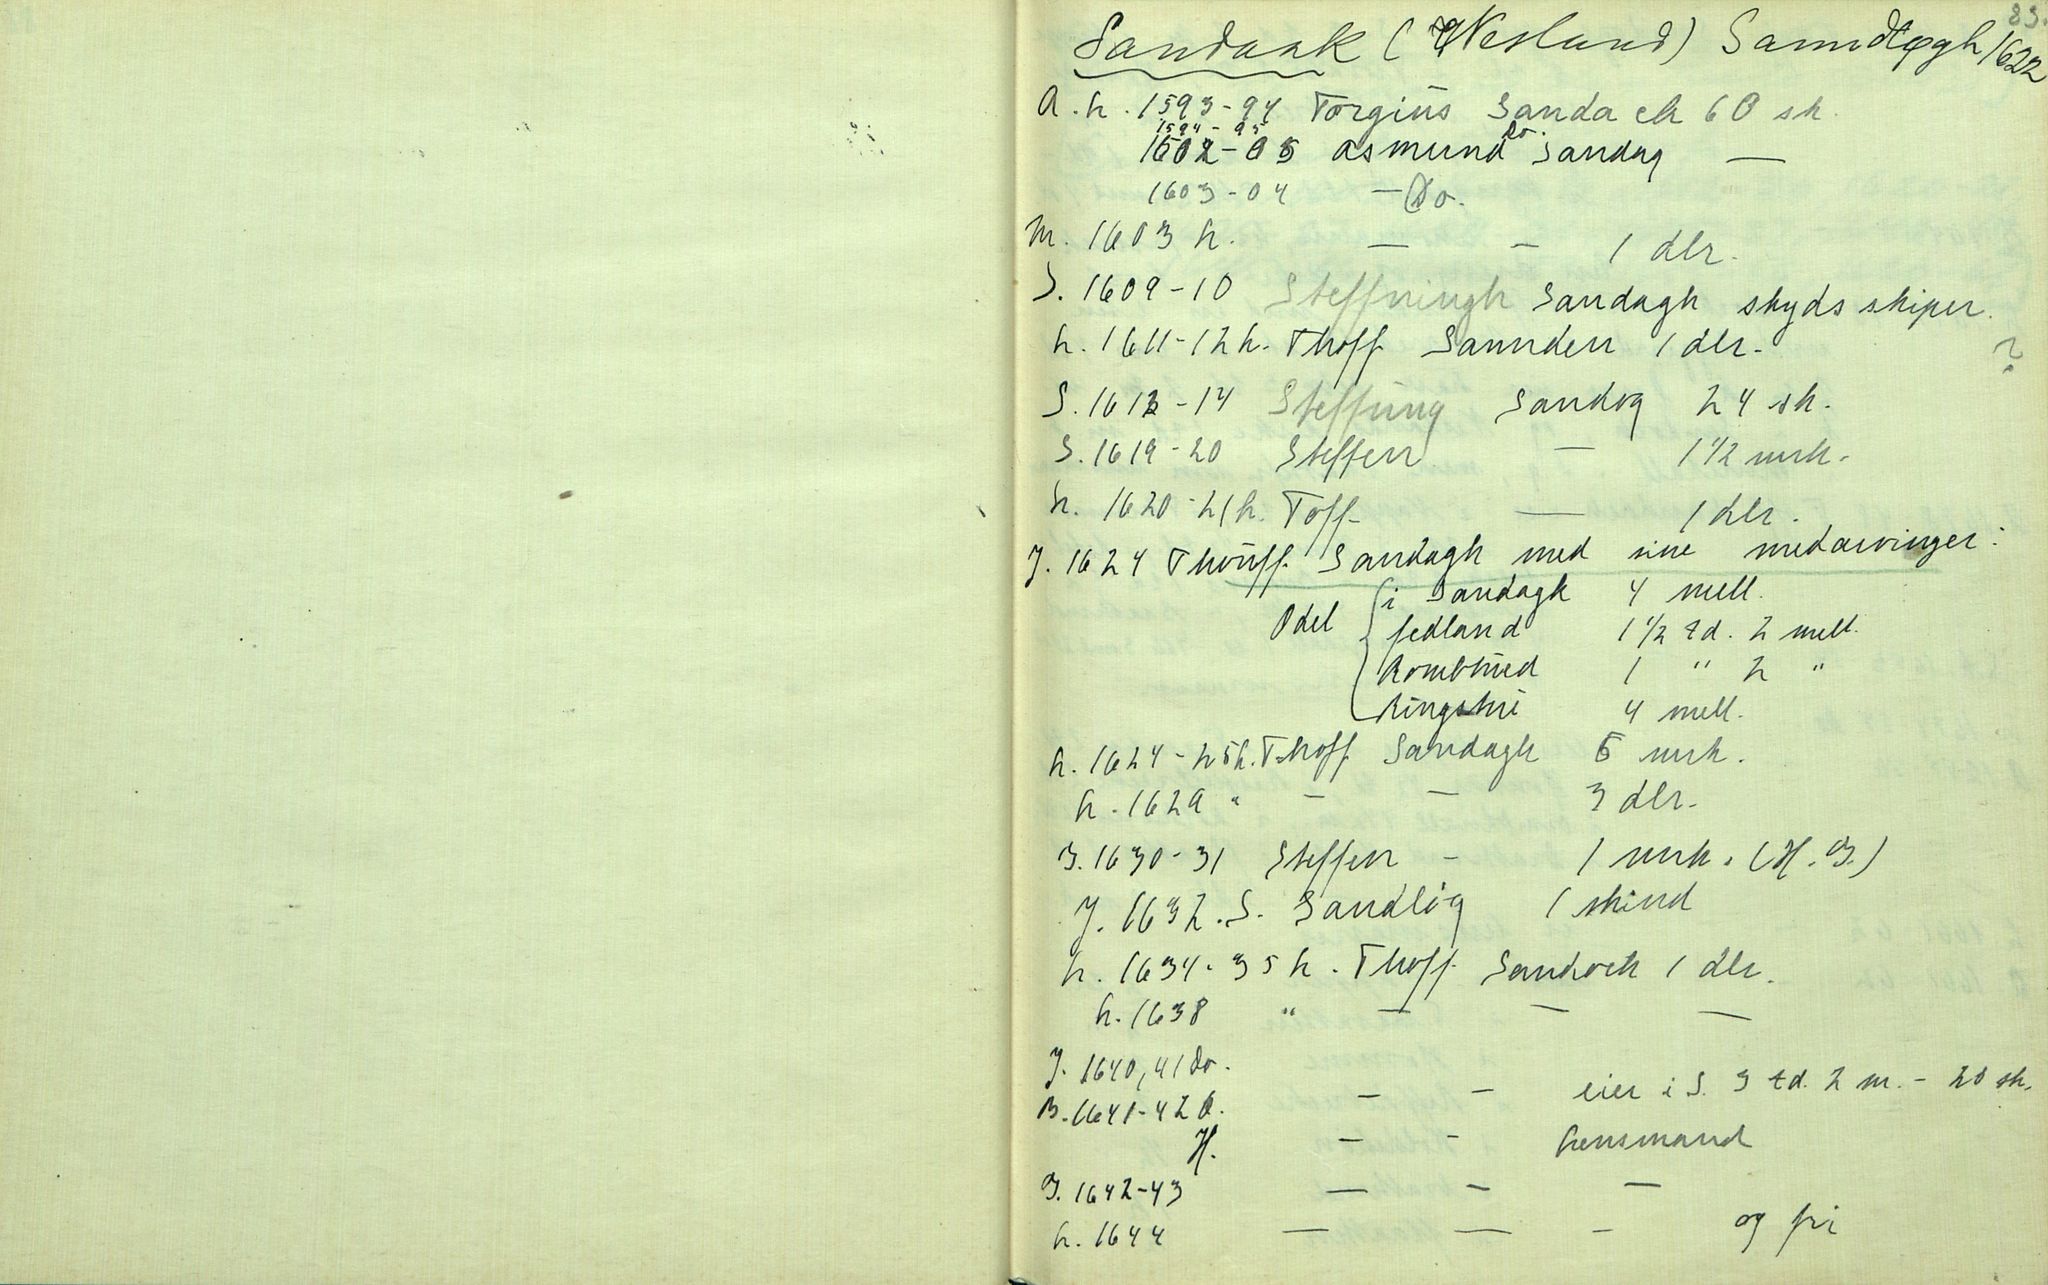 83.
Sandaak (Nesland) Sanndøgh 1622
A. h. 1593-94 Torgius Sanda ek 60 sk.
1594-95 Do.
1602-03 Asmund Sandag —
1603-04 — Do.
M. 1603 h. — — 1 dlr.
S. 1609-10 Steffningh Sandagh skyds skiper.
h. 1611-12 h. Thoff Sannden 1 dlr. ?
S. 1613-14 Steffning Sandog 24 sk.
S. 1619-20 Steffen — 1 1/2 mrk.
h. 1620-21 h. Toff — 1 dlr.
J. 1624 Thouff Sandagh med sine medarvinger:
Odel i Sandagh 4 mell.
Jedland 1 1/2 td. 2 mell.
Rombtued 1 " 2 "
Ringshus 4 mell.
h. 1624-25 h. Thoff Sandagh 5 mrk.
h. 1629 " — — 3 dlr.
B. 1630-31 Steffen — 1 mrk. (H.B.)
J. 1632. S. Sandløg 1 skind
h. 1634-35 h. Thoff Sandoch 1 dlr.
h. 1638 " — — —
J. 1640, 41 Do.
— — eier i S. 3 td. 2 m. - 20 sk.
B. 1641-42 O.
H. — — Lensmand
B. 1642-43 — — —
h. 1644 — — — og fri